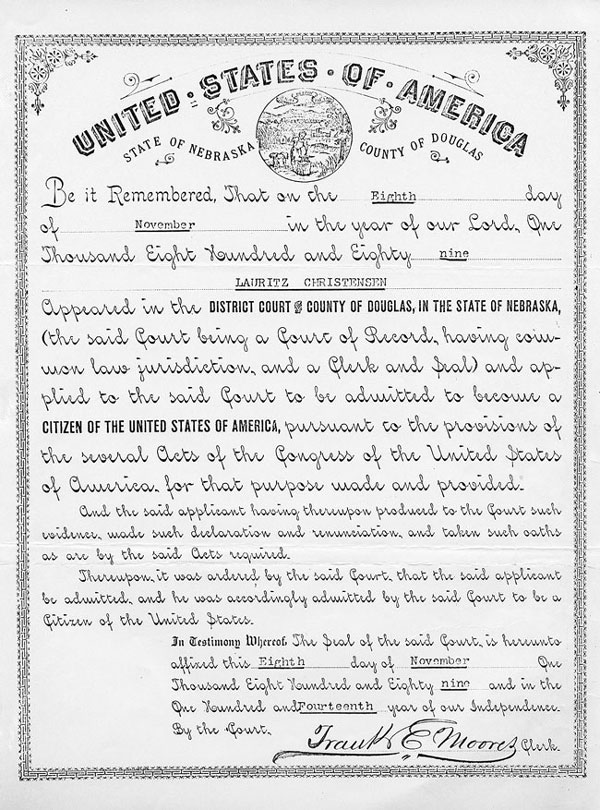 UNITED · STATES · OF · AMERICA
STATE OF NEBRASKA COUNTY OF DOUGLAS
Be it Remembered, That on the Eighth day
of November in the year of our Lord, One
Thousand Eight Hundred and Eighty nine
LAURITZ CHRISTENSEN
Appeared in the DISTRICT COURT OF COUNTY OF DOUGLAS, IN THE STATE OF NEBRASKA,
(the said Court being a Court of Record, having com-
mon law jurisdiction, and a Clerk and Seal) and ap-
plied to the said Court to be admitted to become a
CITIZEN OF THE UNITED STATES OF AMERICA, pursuant to the provisions of
the several Acts of the Congress of the United States
of America, for that purpose made and provided.
And the said applicant having thereupon produced to the Court such
evidence, made such declaration and renunciation, and taken such oaths
as are by the said Acts required.
Thereupon, it was ordered by the said Court, that the said applicant
be admitted, and he was accordingly admitted by the said Court to be a
Citizen of the United States.
In Testimony Whereof, The Seal of the said Court, is hereunto
affixed this Eighth day of November One
Thousand Eight Hundred and Eighty nine and in the
One Hundred and Fourteenth year of our Independence.
By the Court,
Frank E. Moores Clerk.